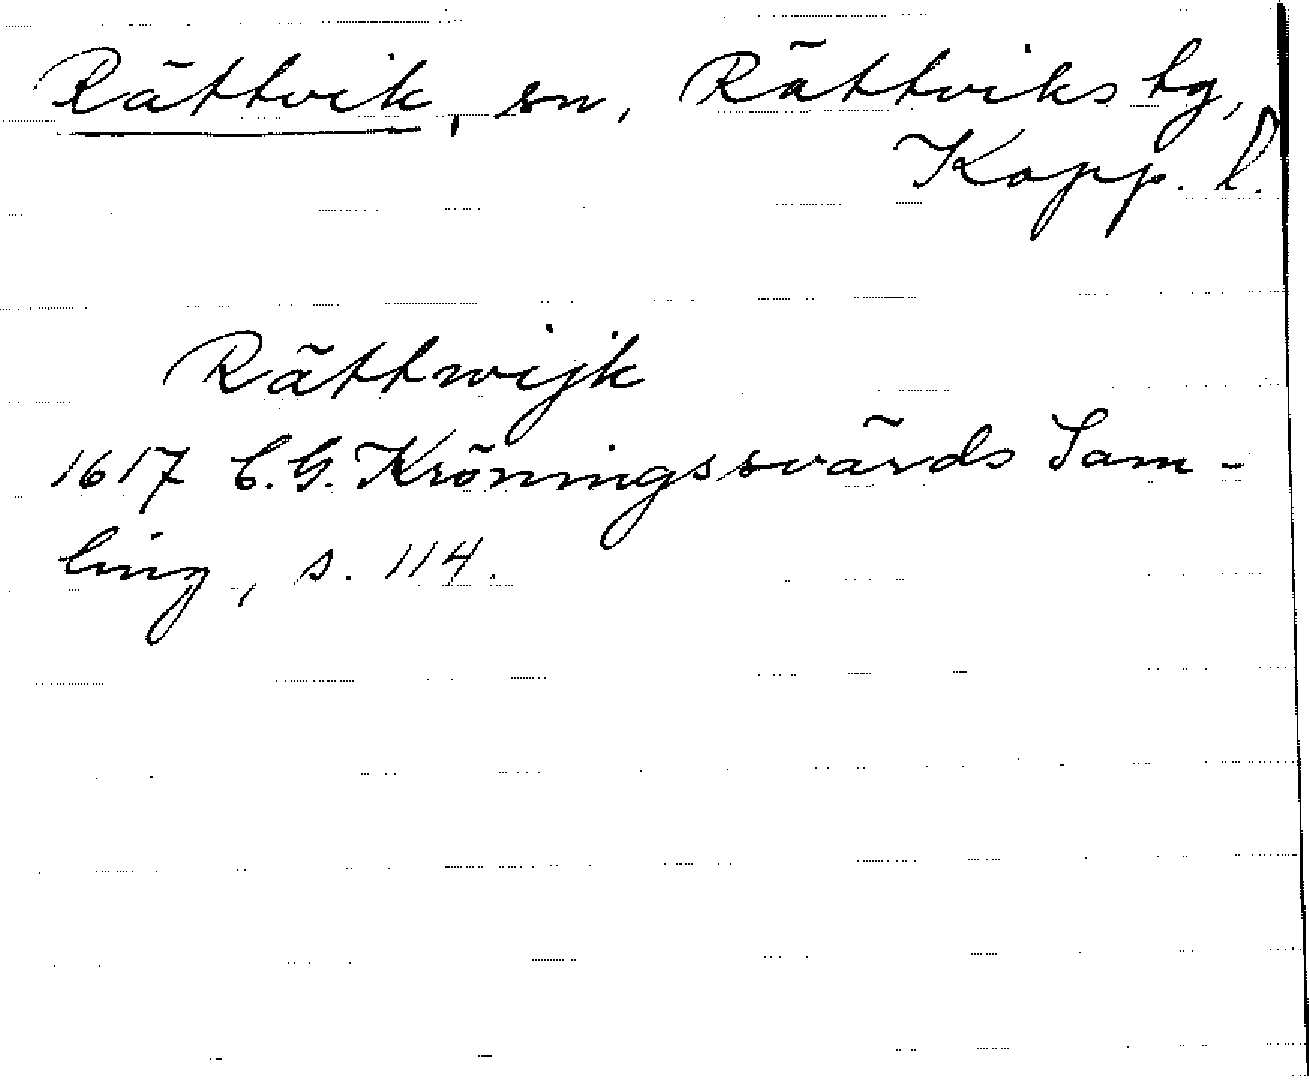 Rättvik, sn, Rättviks tg,
Kopp. l.
Rättwijk
1617 C.G. Kröningssvärds Sam-
ling, s. 114.